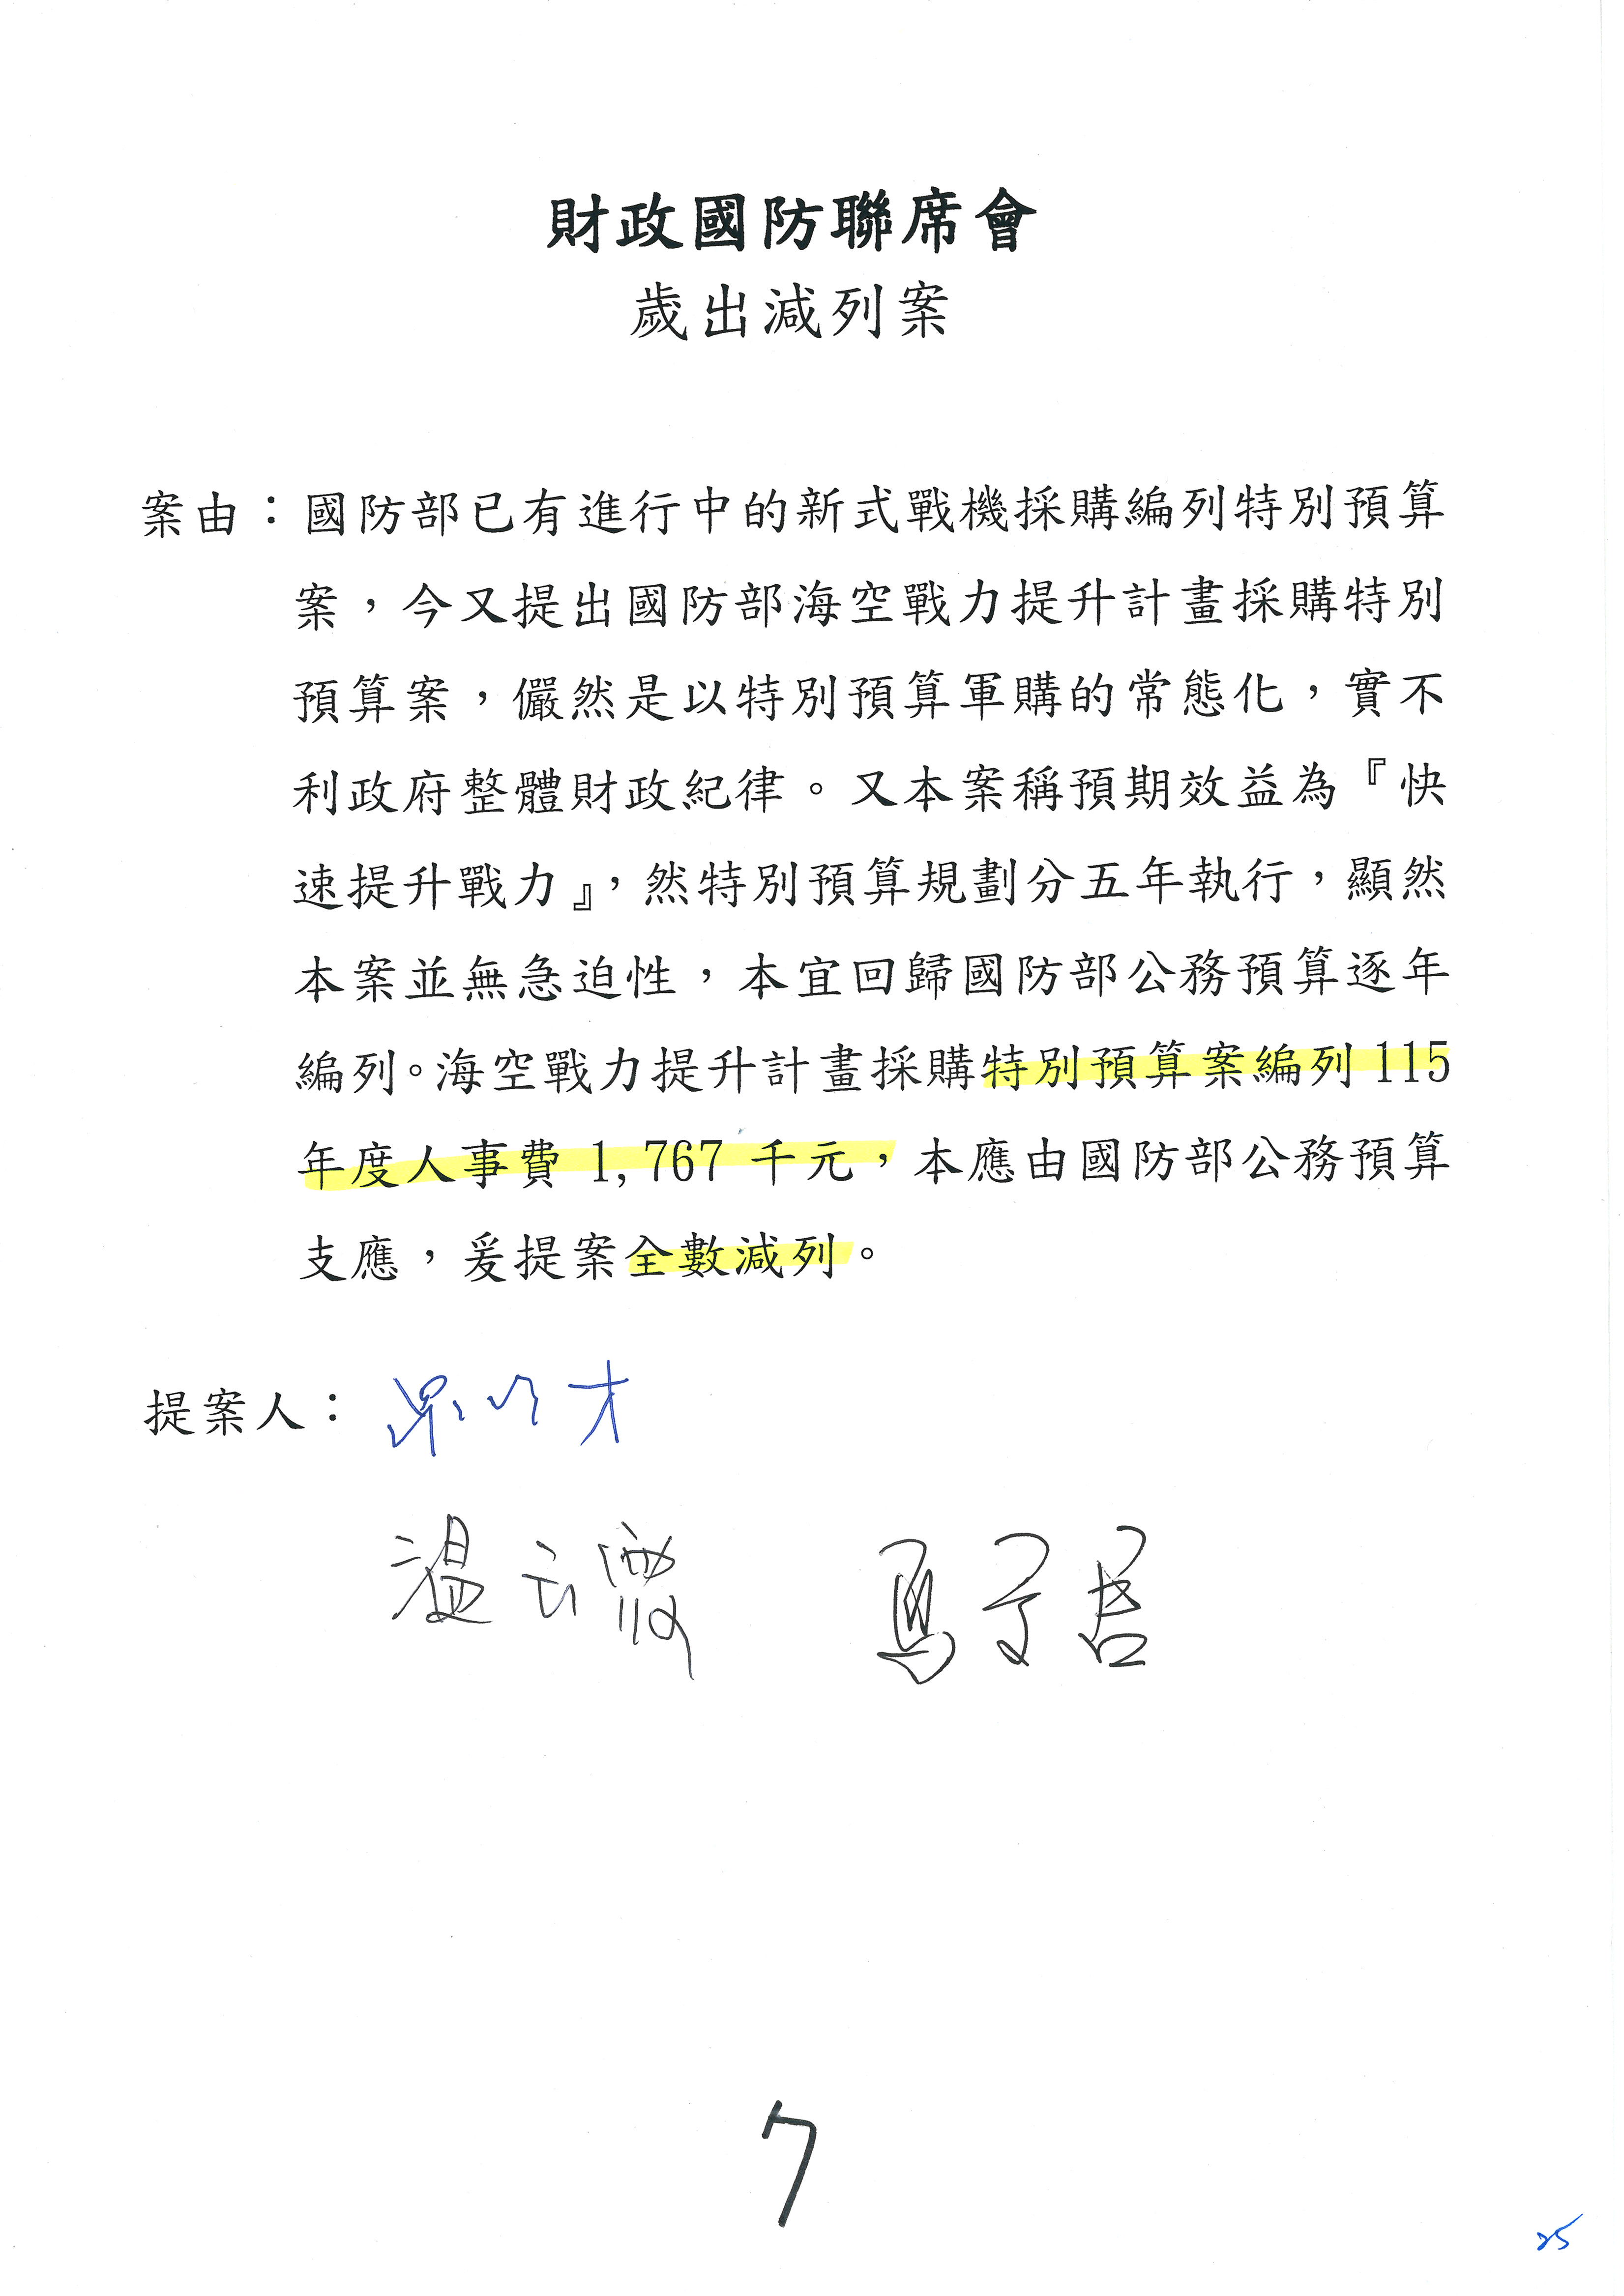 財政國防聯席會
歲出減列案
案由：國防部已有進行中的新式戰機採購編列特別預算
案，今又提出國防部海空戰力提升計畫採購特別
預算案，儼然是以特別預算軍購的常態化，實不
利政府整體財政紀律。又本案稱預期效益為『快
速提升戰力』，然特別預算規劃分五年執行，顯然
本案並無急迫性，本宜回歸國防部公務預算逐年
編列。海空戰力提升計畫採購特別預算案編列 115
年度人事費 1,767 千元，本應由國防部公務預算
支應，爰提案全數減列。
提案人：
溫玉霞 馬文君
7
25